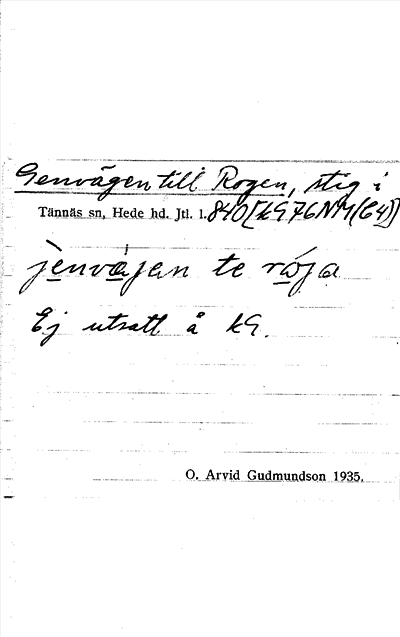 Genvägen till Rogen, stig i
Tännäs sn, Hede hd. Jtl. l. 840 [kG 76 NV (C4)]
jènvä́jen te rója
Ej utsatt å kG.
O. Arvid Gudmundson 1935.